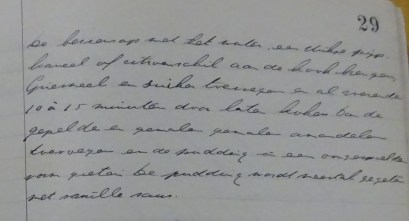 29
De bessensap met het water, een stukje pijp-
kaneel of citroenschil aan de kook brengen,
Griesmeel en suiker toevoegen en al roerende
10 à 15 minuten door laten koken
gepelde en gemalen amandelen
toevoegen en de pudding in een
vorm gieten De pudding wordt meestal gegeten
met vanille saus.